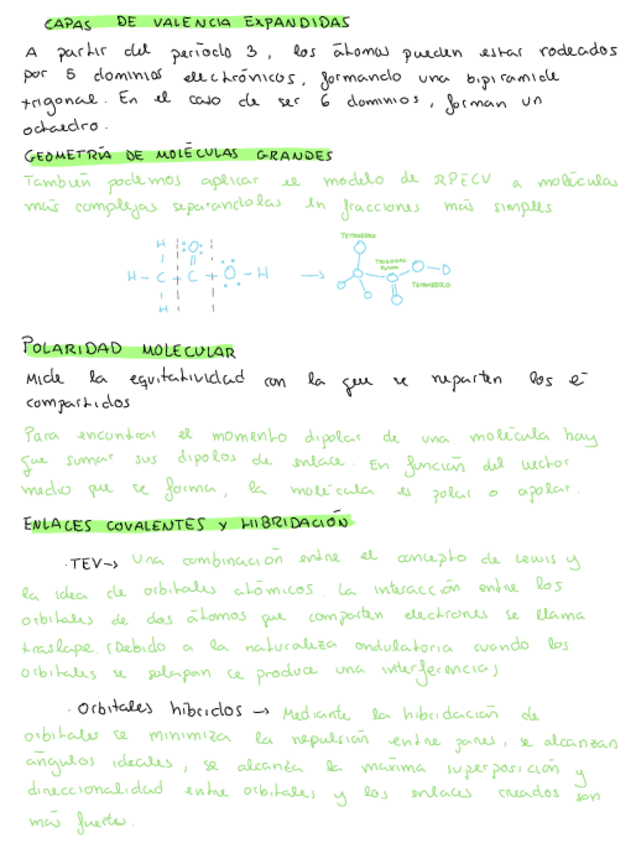 CAPAS DE VALENCIA EXPANDIDAS
A partir del período 3, los átomos pueden estar rodeados
por 5 dominios electrónicos, formando una bipiramide
trigonal. En el caso de ser 6 dominios, forman un
octaedro.
GEOMETRÍA DE MOLÉCULAS GRANDES
También podemos aplicar el modelo de RPECV a moléculas
más complejas separandolas en fracciones más simples
H :O: TETRAEDRO
TRIGONAL PLANA
H - C + C + O - H → TETRAEDRO
H
POLARIDAD MOLECULAR
Mide la equitatividad con la que se reparten los e-
compartidos
Para encontrar el momento dipolar de una molécula hay
que sumar sus dipolos de enlace. En función del vector
medio que se forma, la molécula es polar o apolar.
ENLACES COVALENTES y HIBRIDACIÓN
· TEV→ Una combinación entre el concepto de Lewis y
la idea de orbitales atómicos. La interacción entre los
orbitales de dos átomos que comparten electrones se llama
traslape. (Debido a la naturaleza ondulatoria cuando los
orbitales se solapan se produce una interferencia)
· Orbitales híbridos → Mediante la hibridación de
orbitales se minimiza la repulsión entre pares, se alcanzan
ángulos ideales, se alcanza la máxima superposición y
direccionalidad entre orbitales y los enlaces creados son
más fuertes.